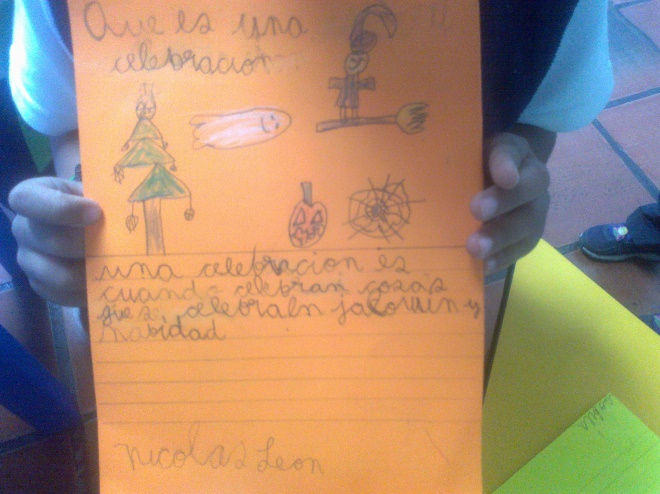 Que es una
celebracion
una celebracion es
cuando celebran cosas
que se celebraln jalowin y
nabidad
nicolas Leon